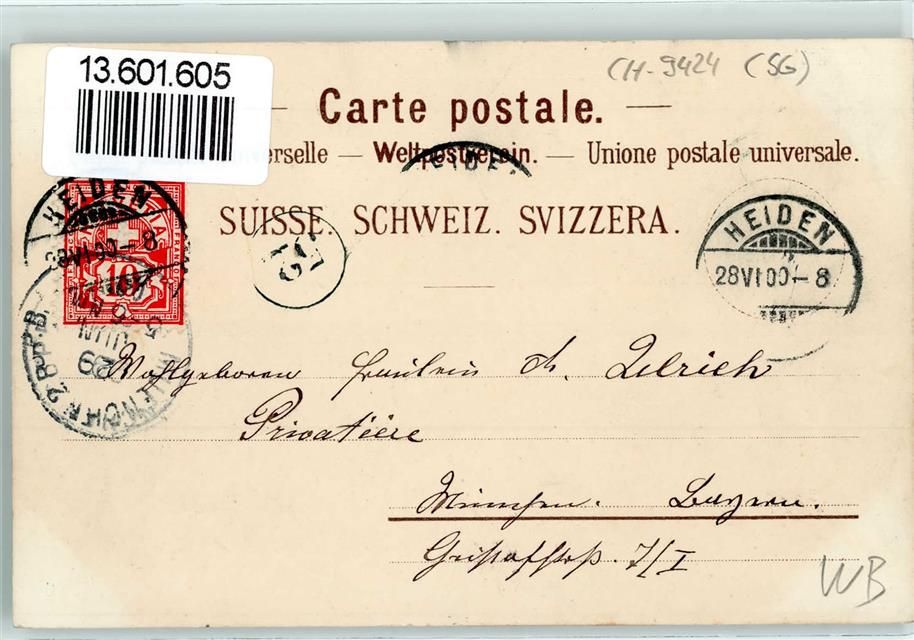 13.601.605
CH-9424 (SG)
— Carte postale. —
erselle — Weltpostverein. — Unione postale universale.
SUISSE. SCHWEIZ. SVIZZERA.
HEIDEN
HEIDEN
28 VI 00 – 8
HEIDEN
28 VI 00 – 8
10
FRANCO
29 JUN
MUENCHEN 2 B.P. B.
Wohlgeboren Fräulein A. Ulrich
Privatière
München. Bayern.
7/I
WB